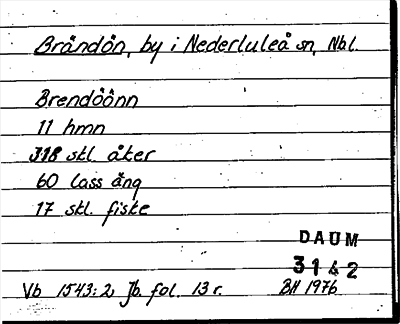 Brändön, by i Nederluleå sn, Nbl.
Brendöönn
11 hmn
318 skl åker
60 lass äng
17 skl. fiske
DAUM
3142
Vb 1543:2 Jb. fol. 13 r. BH 1976